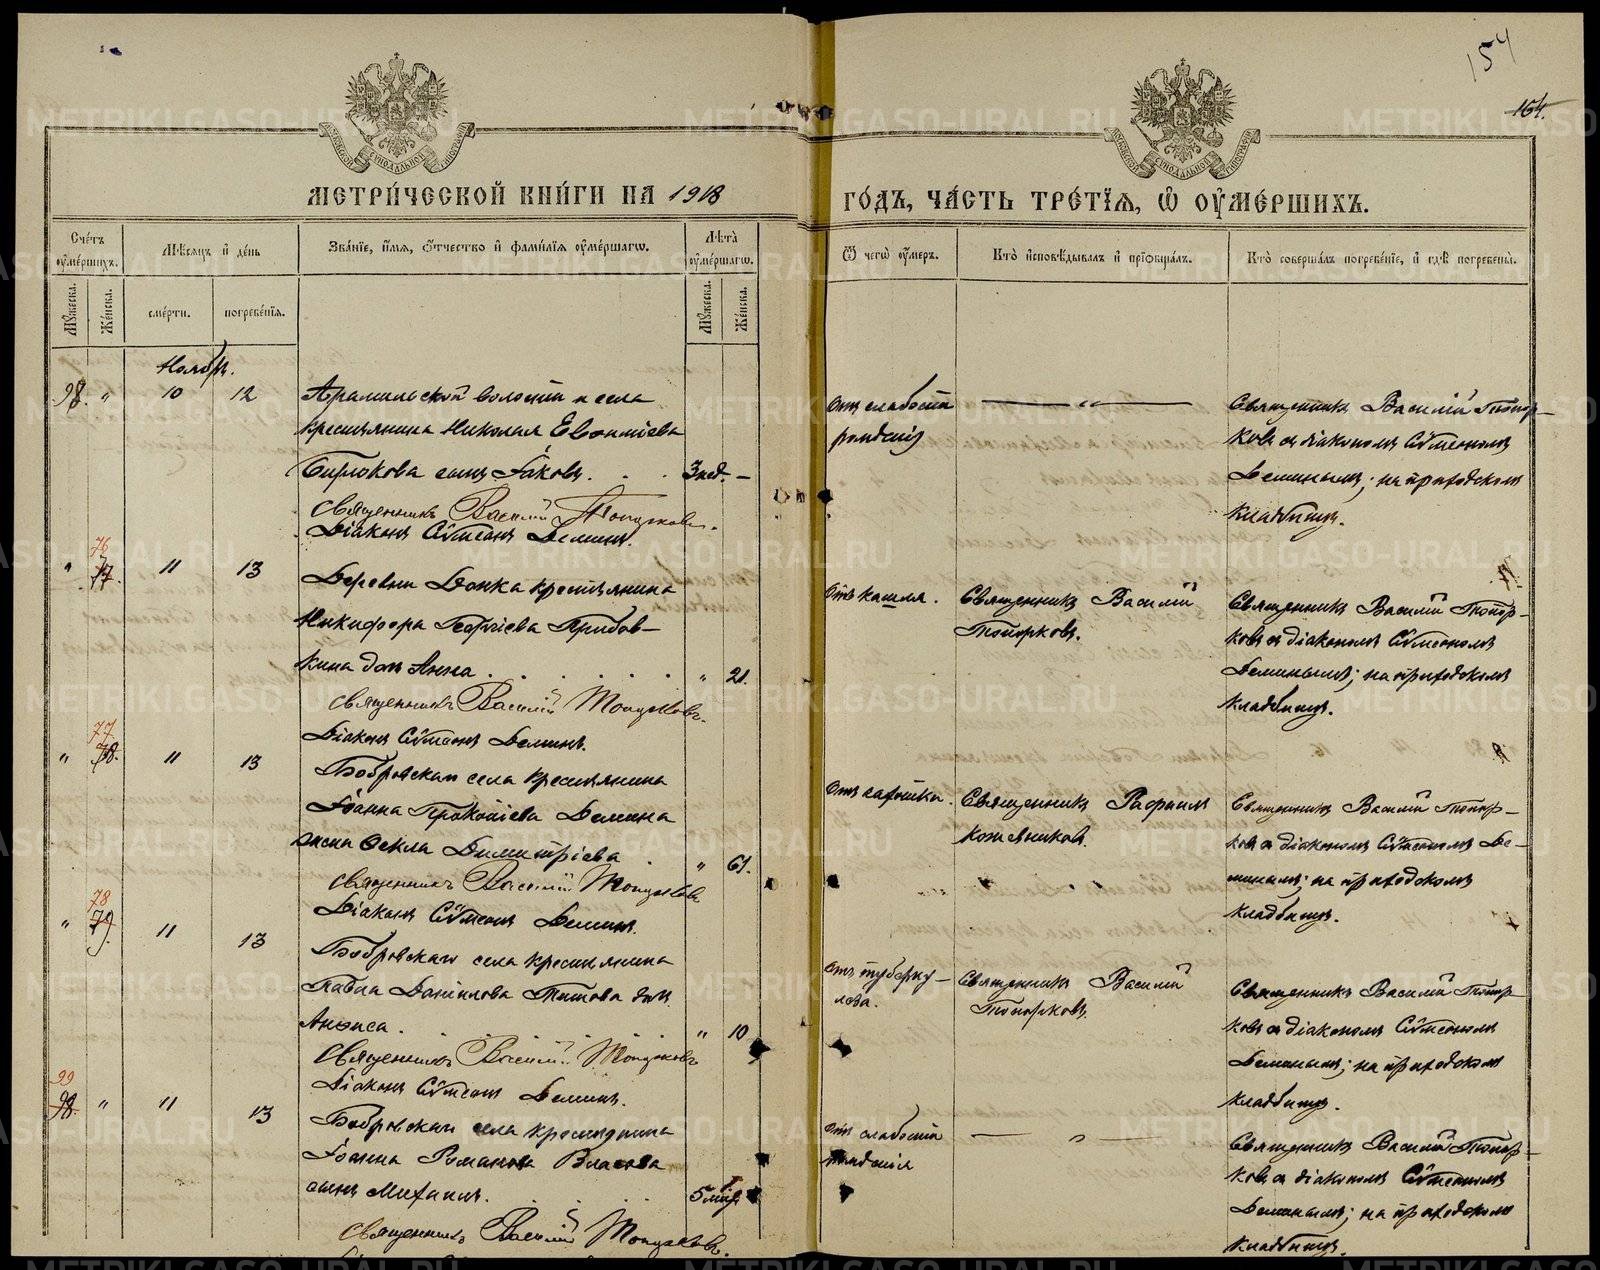 154
164.
МЕТРИ́ЧЕСКОЙ КНИ́ГИ НА 1918
ГО́ДЪ, ЧА́СТЬ ТРЕ́ТІЯ, Ѿ ОУ҆МЕ́РШИХЪ.
Сче́тъ оу҆ме́ршихъ.
Мѣ́сяцъ и҆ де́нь
Зва́нїе, и҆́мя, ѻ҆́тчество и҆ фами́лїя оу҆ме́ршагѡ.
Лѣ́та оу҆ме́ршагѡ.
Ѿ чегѡ̀ оу҆́меръ.
Кто̀ и҆сповѣ́дывалъ и҆ прїѡбща́лъ.
Кто̀ соверша́лъ погребе́нїе, и҆ гдѣ̀ погребены̀.
Му́жеска.
Же́нска.
сме́рти.
погребе́нїя.
Му́жеска.
Же́нска.
Ноябрь.
98. " 10 12
Арамильской волости и села
крестьянина Николая Евѳиміева
Бирюкова сынъ Іаковъ. 3 нед. –
Священникъ Василій Топорковъ.
Діаконъ Сѵмеонъ Деминъ.
Отъ слабости
рожденія
— " —
Священникъ Василій Топор-
ковъ съ діакономъ Сѵмеономъ
Деминымъ; на приходскомъ
кладбищѣ.
76
" 77. 11 13
Деревни крестьянина
Никифора Георгіева
дочь Анна " 21.
Священникъ Василій Топорковъ.
Діаконъ Сѵмеонъ Деминъ.
Отъ кашля.
Священникъ Василій
Топорковъ.
Священникъ Василій Топор-
ковъ съ діакономъ Сѵмеономъ
Деминымъ; на приходскомъ
кладбищѣ.
77
" 78. 11 13
Бобровскаго села крестьянина
Іоанна Прокопіева Демина
жена Ѳекла Димитріева " 61.
Священникъ Василій Топорковъ
Діаконъ Сѵмеонъ Деминъ.
Отъ
Священникъ Рафаилъ
Кожевниковъ.
Священникъ Василій Топор-
ковъ съ діакономъ Сѵмеономъ Де-
минымъ; на приходскомъ
кладбищѣ.
78
" 79. 11 13
Бобровскаго села крестьянина
Павла Даніилова Титова дочь
Анѳиса. " 10
Священникъ Василій Топорковъ
Діаконъ Сѵмеонъ Деминъ.
Отъ туберку-
леза.
Священникъ Василій
Топорковъ.
Священникъ Василій Топор-
ковъ съ діакономъ Сѵмеономъ
Деминымъ; на приходскомъ
кладбищѣ.
99
98. " 11 13
Бобровскаго села крестьянина
Іоанна Романова Власова
сынъ Михаилъ. 5 мѣс.
Священникъ Василій Топорковъ.
Отъ слабости
рожденія
— " —
Священникъ Василій Топор-
ковъ съ діакономъ Сѵмеономъ
Деминымъ; на приходскомъ
кладбищѣ.
METRIKI.GASO-URAL.RU